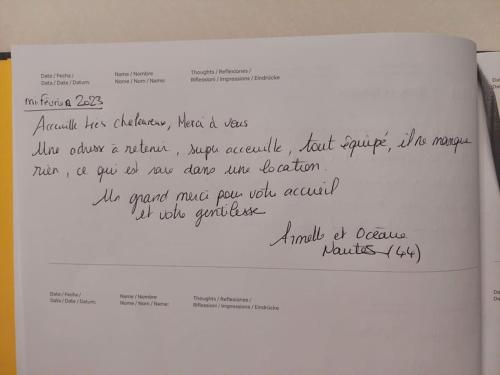 Date / Fecha / Name / Nombre Thoughts / Reflexiones /
Data / Date / Datum: Nome / Nom / Name: Riflessioni / Impressions / Eindrücke
mi-février 2023
Accueille très chaleureux, Merci à vous
Une adresse à retenir, super accueille, tout équipé, il ne manque
rien, ce qui est rare dans une location.
Un grand merci pour votre accueil
et votre gentillesse
Armelle et Océane
Nantes (44)
Date / Fecha / Name / Nombre Thoughts / Reflexiones /
Data / Date / Datum: Nome / Nom / Name: Riflessioni / Impressions / Eindrücke